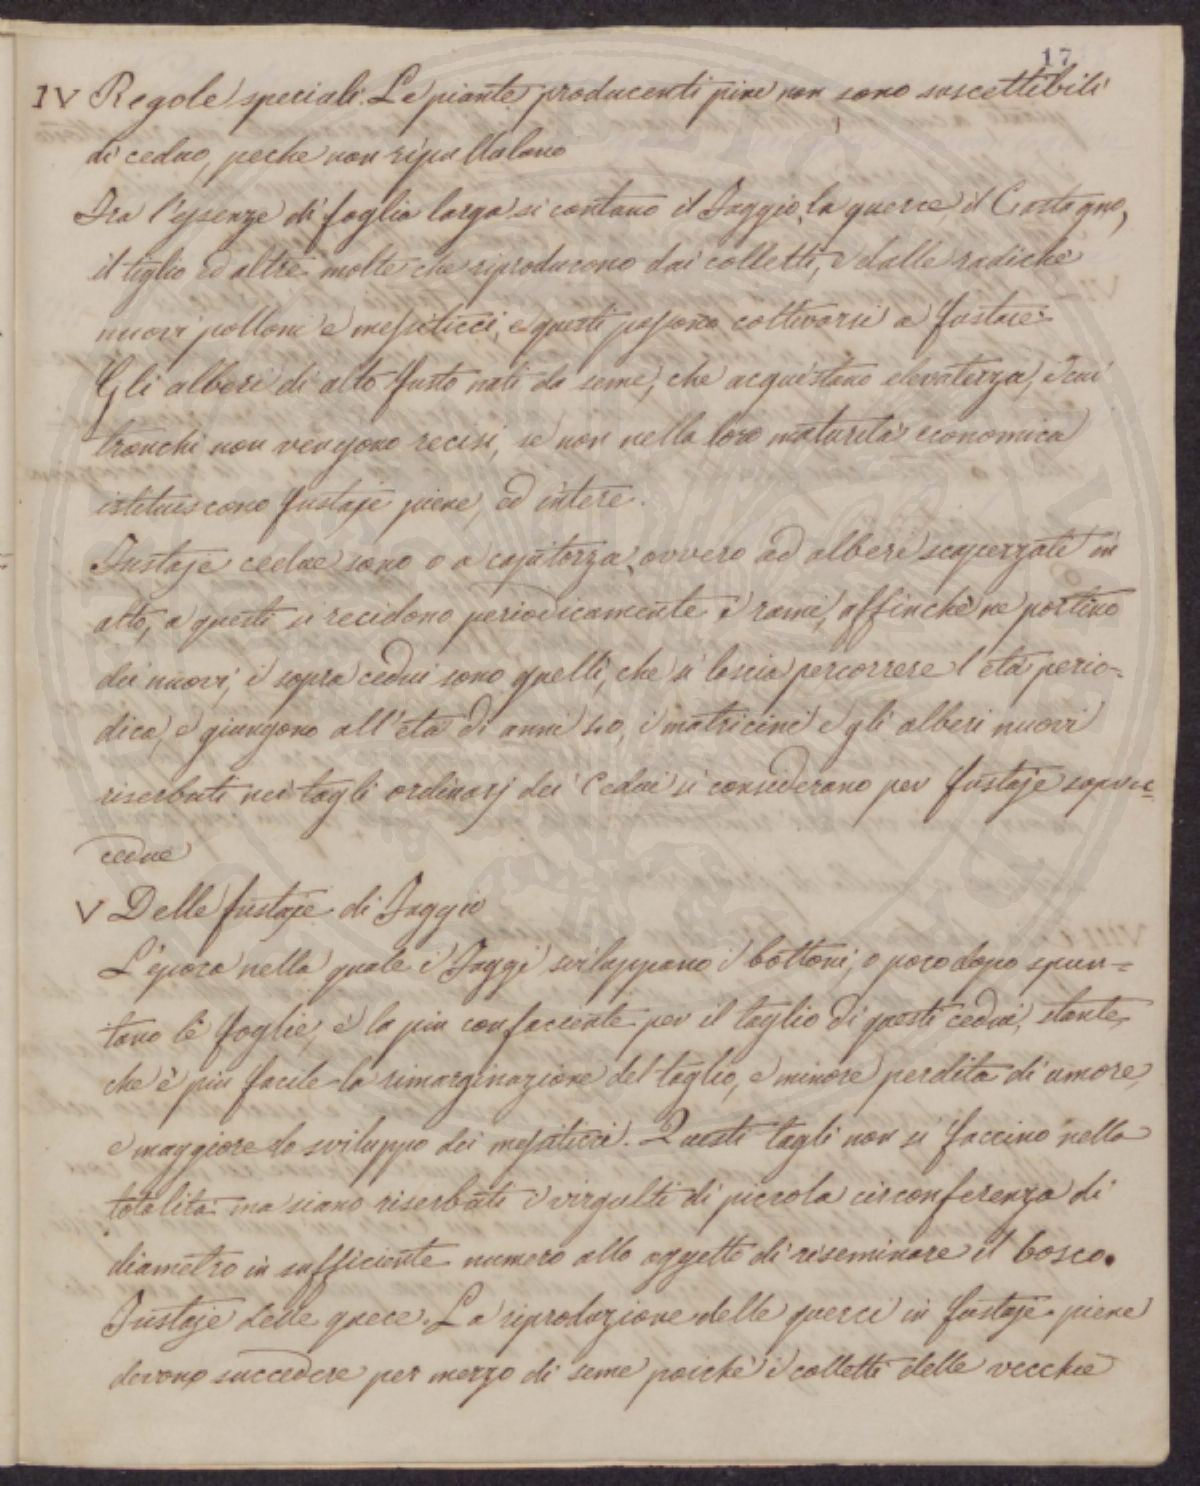 17
IV Regole speciali. Le piante producenti pine non sono suscettibili
di ceduo, peche non ripullulano
Fra l'essenze di foglia larga si contano il Faggio, la querce, il Castagno,
il tiglio ed altre molte che riproducono dai colletti, e dalle radiche
nuovi polloni e messiticci, e questi possono coltivarsi a fustaie.
Gli alberi di alto fusto nati da seme, che acquistano elevatezza, i cui
tronchi non vengono recisi, se non nella loro maturità economica
istituiscono fustaje piene, ed intere.
Fustaje cedue sono o a capitozza, ovvero ad alberi scapezzati in
alto, a questi si recidono periodicamente i rami, affinchè ne portino
dei nuovi, i sopra cedui sono quelli, che si lascia percorrere l'età perio-
dica, e giungono all'età di anni 40, i matricini e gli alberi nuovi
riserbati nei tagli ordinarj dei Cedui si considerano per fustaje sopra=
cedue
V Delle fustaje di Faggio
L'epoca nella quale i Faggi sviluppano i bottoni, o poco dopo spun=
tano le foglie, è la piu confacente per il taglio di questi cedui, stante,
che è piu facile la rimarginazione del taglio, e minore perdita di umore,
e maggiore lo sviluppo dei messiticci. Questi tagli non si faccino nella
totalità ma siano riserbati i virgulti di piccola circonferenza di
diametro in sufficiente numero allo oggetto di riseminare il bosco.
Fustaje delle quece. La riproduzione delle querci in fustaje piene
devono succedere per mezzo di seme poichè i colletti delle vecchie